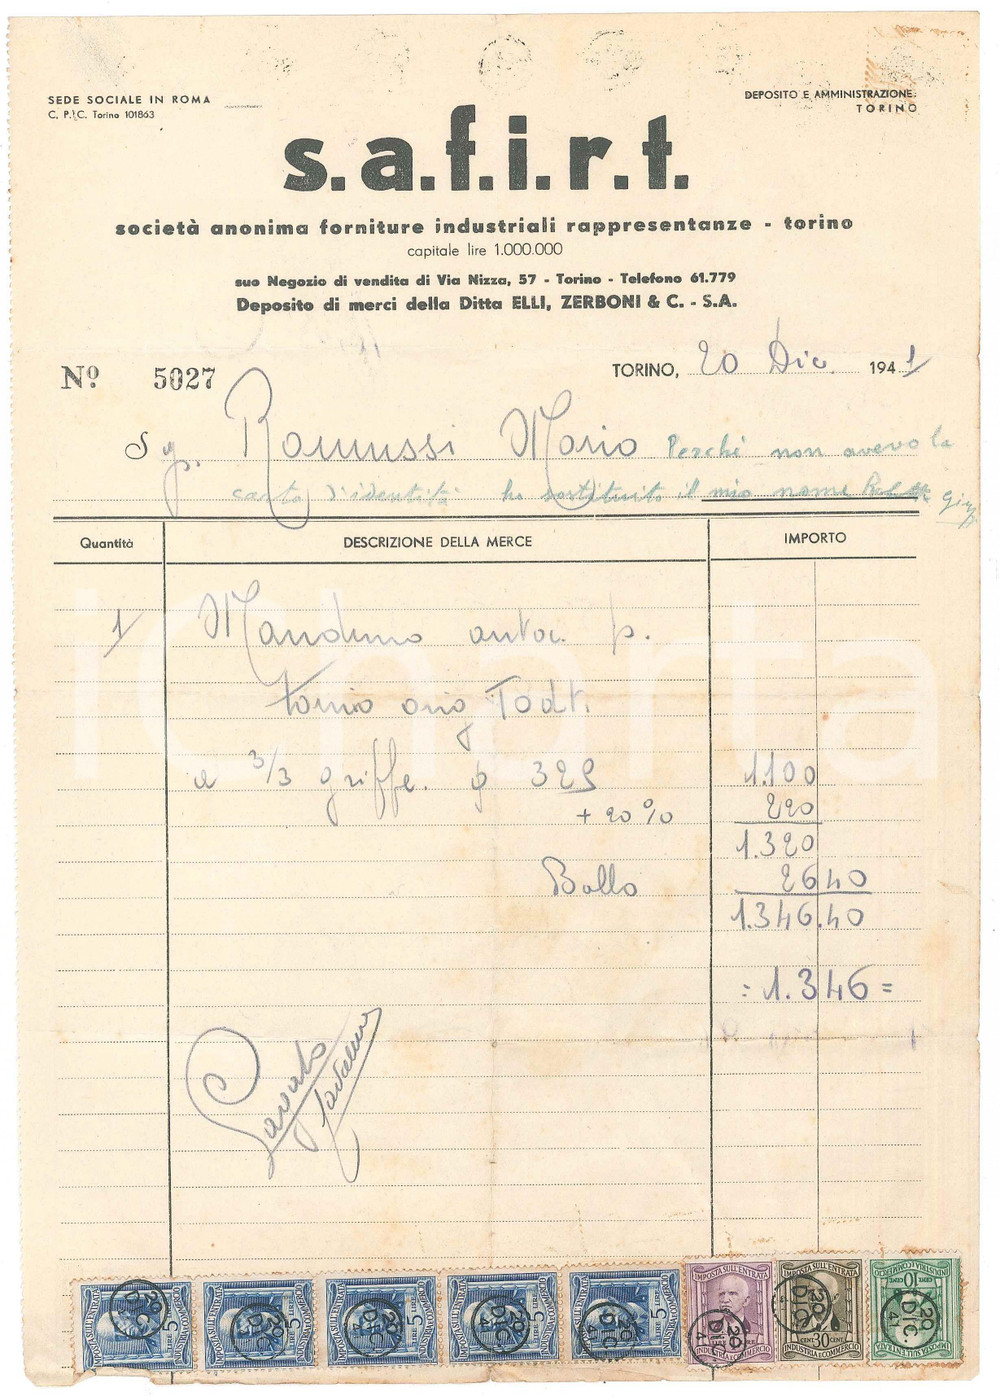 SEDE SOCIALE IN ROMA
C. P. C. Torino 101863
DEPOSITO E AMMINISTRAZIONE:
TORINO
s.a.f.i.r.t.
società anonima forniture industriali rappresentanze - torino
capitale lire 1.000.000
suo Negozio di vendita di Via Nizza, 57 - Torino - Telefono 61.779
Deposito di merci della Ditta ELLI, ZERBONI & C. - S.A.
Nº 5027
TORINO, 20 Dic. 1941
Sig. Ramussi Mario Perché non avevo la
carta d'identità ho sostituito il mio nome
Quantità DESCRIZIONE DELLA MERCE IMPORTO
1 Mandrino p.
tornio orig
a 3/3 griffe. φ 325 1.100
+ 20% 220
1.320
Bollo 26 40
1.346.40
= 1.346 =
Pagato
iCharta
IMPOSTA SULL'ENTRATA LIRE 5 INDUSTRIA E COMMERCIO 20 DIC. 41
IMPOSTA SULL'ENTRATA LIRE 5 INDUSTRIA E COMMERCIO 20 DIC. 41
IMPOSTA SULL'ENTRATA LIRE 5 INDUSTRIA E COMMERCIO 20 DIC. 41
IMPOSTA SULL'ENTRATA LIRE 5 INDUSTRIA E COMMERCIO 20 DIC. 41
IMPOSTA SULL'ENTRATA LIRE 5 INDUSTRIA E COMMERCIO 20 DIC. 41
IMPOSTA SULL'ENTRATA INDUSTRIA E COMMERCIO 20 DIC. 41
IMPOSTA SULL'ENTRATA CENT. 30 CENT. INDUSTRIA E COMMERCIO 20 DIC. 41
IMPOSTA SULL'ENTRATA CENT. 10 CENT. INDUSTRIA E COMMERCIO 20 DIC. 41